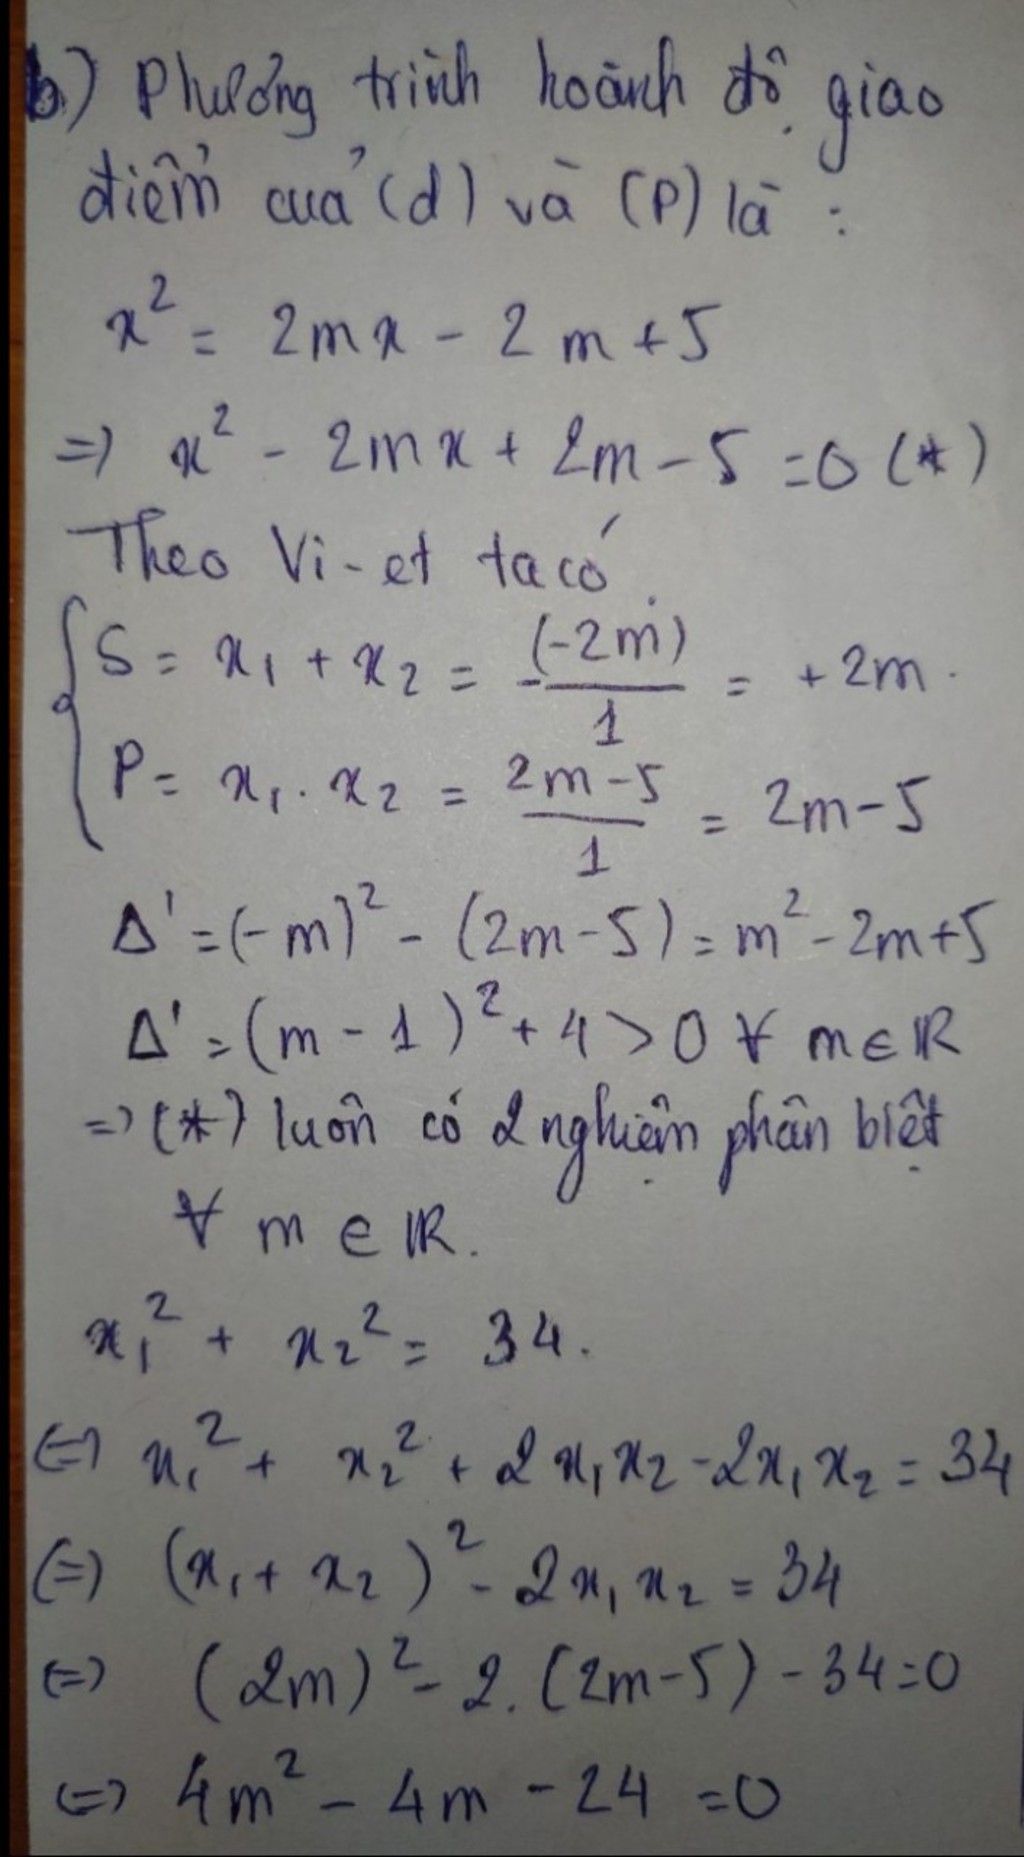 b.) Phương trình hoành độ giao
điểm của (d) và (P) là :
x² = 2mx - 2m + 5
=> x² - 2mx + 2m - 5 = 0 (*)
Theo Vi-et ta có
S = x₁ + x₂ = -(-2m)/1 = +2m.
P = x₁ . x₂ = (2m-5)/1 = 2m - 5
Δ' = (-m)² - (2m-5) = m² - 2m + 5
Δ' = (m - 1)² + 4 > 0 ∀ m ∈ ℝ
=> (*) luôn có 2 nghiệm phân biệt
∀ m ∈ ℝ.
x₁² + x₂² = 34.
(=) x₁² + x₂² + 2x₁x₂ - 2x₁x₂ = 34
(=) (x₁ + x₂)² - 2x₁x₂ = 34
(=) (2m)² - 2.(2m-5) - 34 = 0
(=) 4m² - 4m - 24 = 0